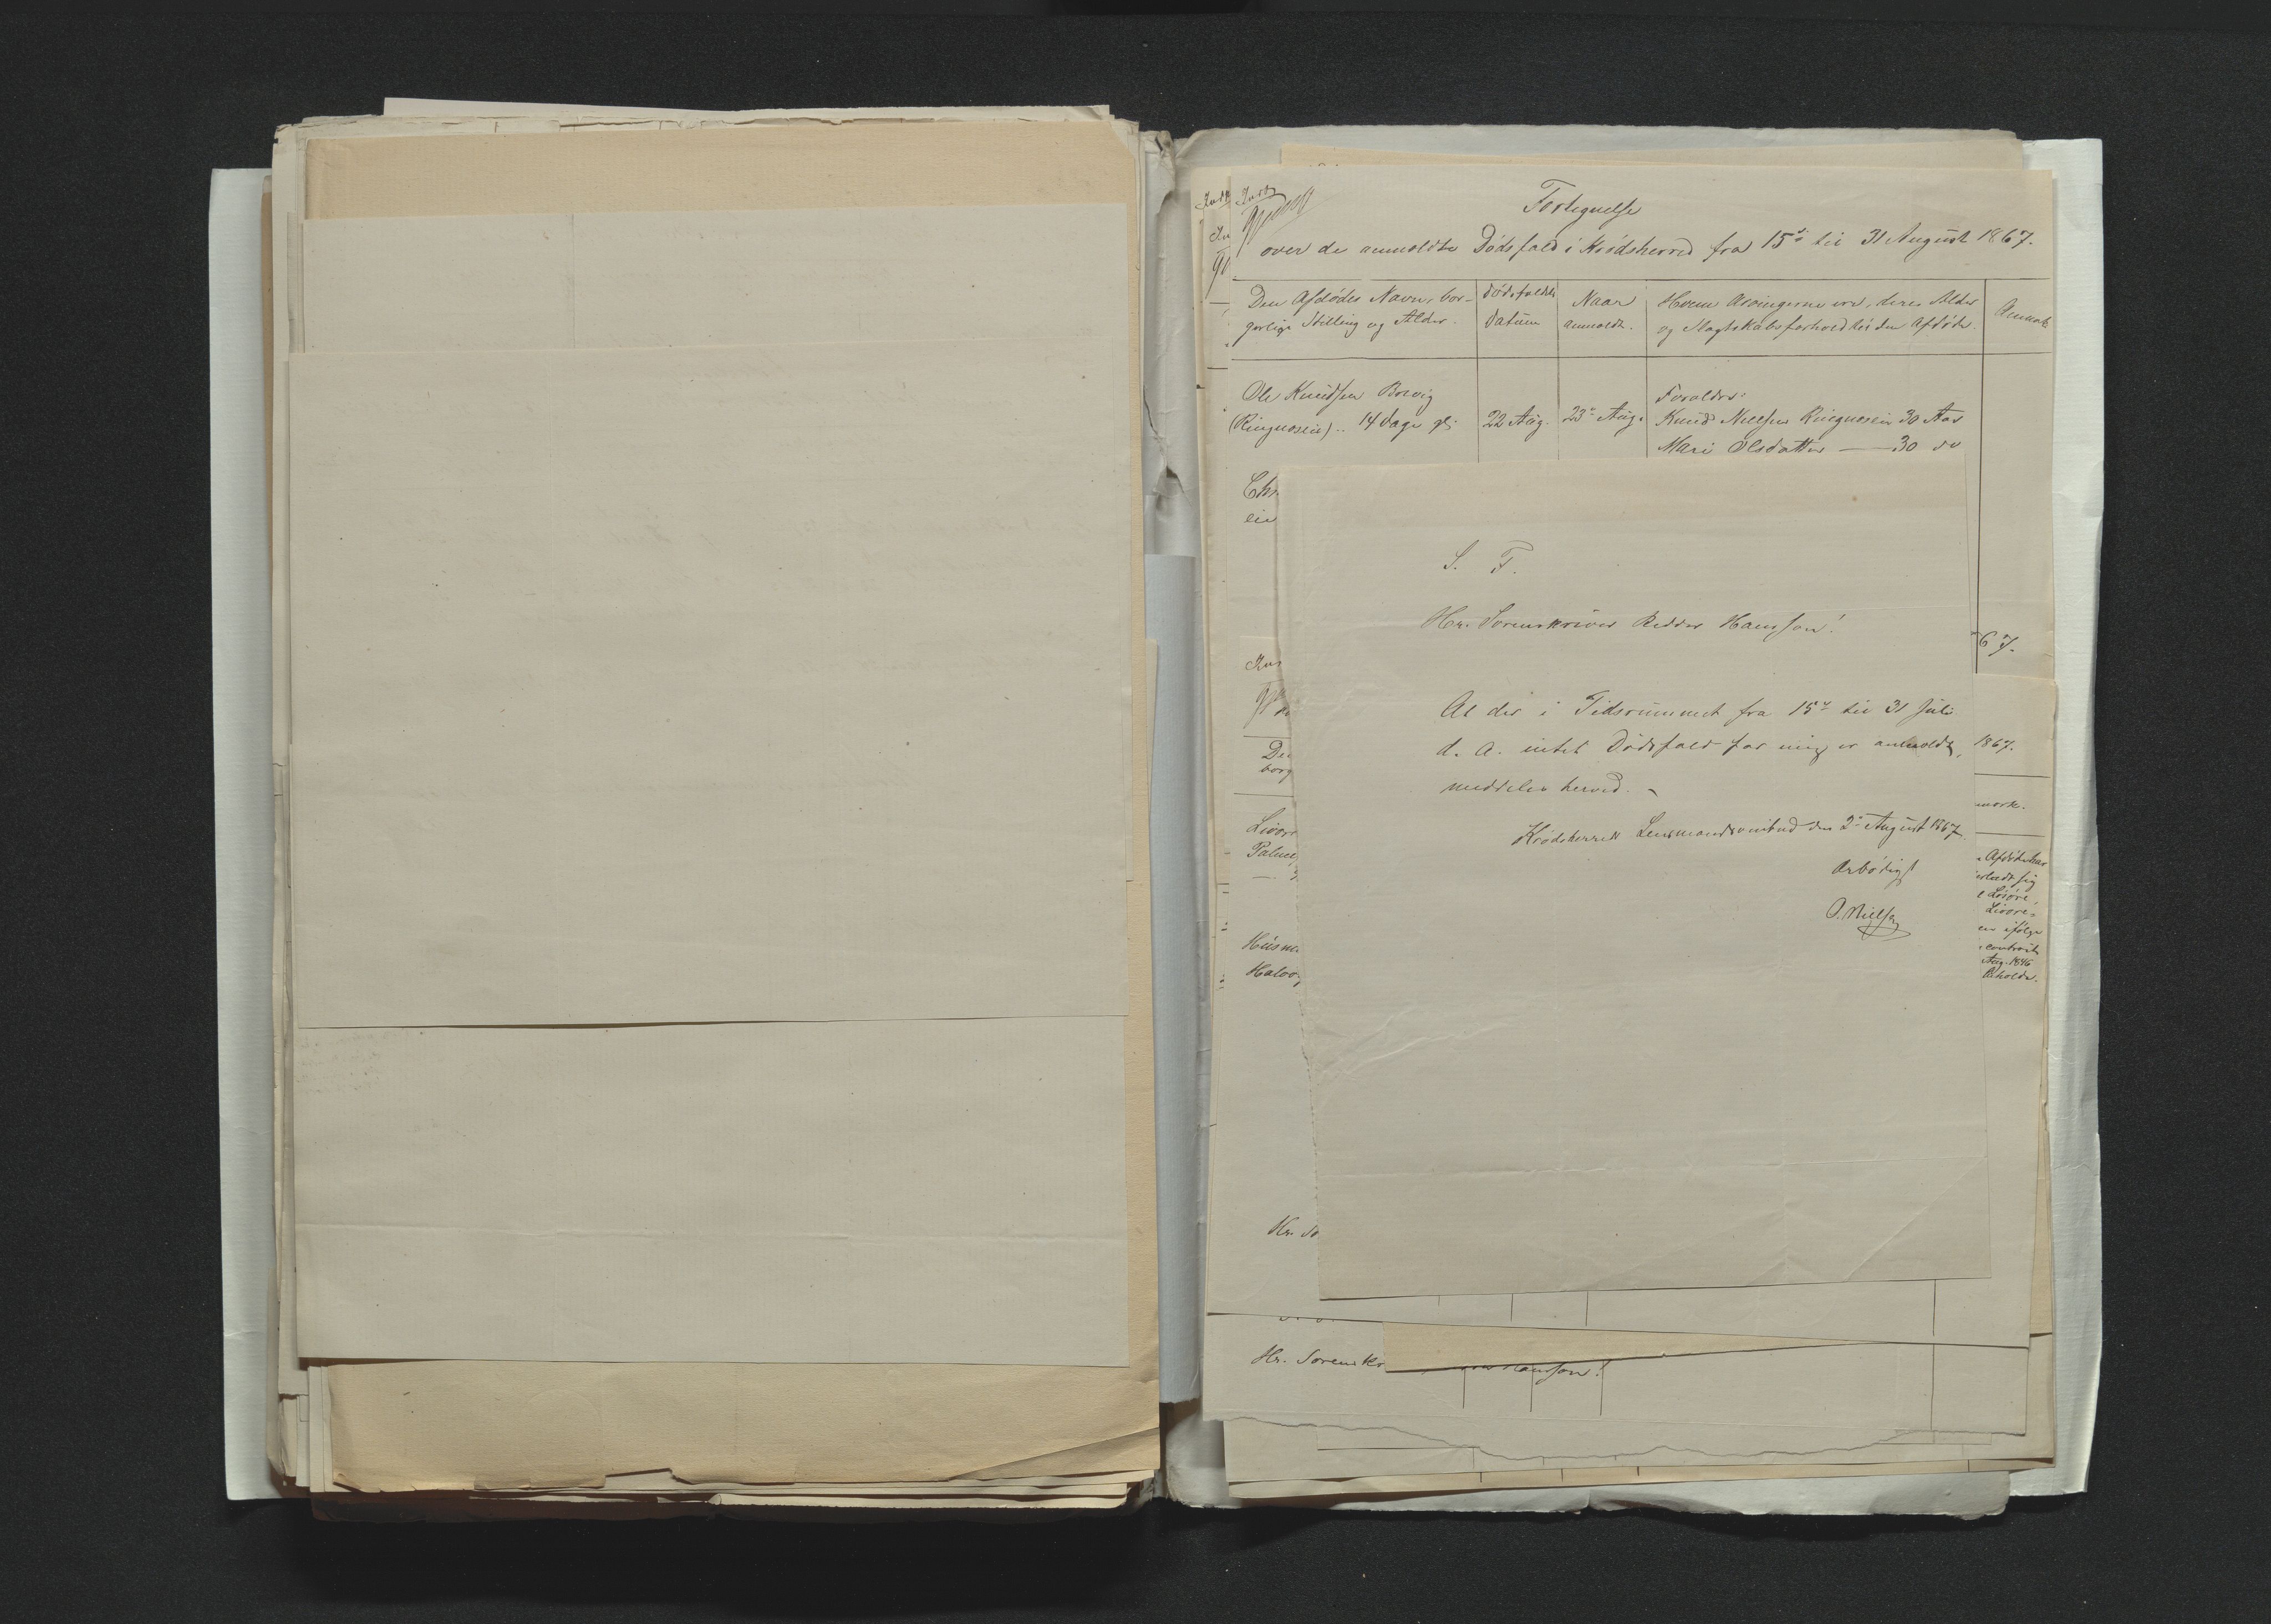 Fortegnelse
over de anmeldte Dödsfald i Krödsherred fra 15de til 31 August 1867.
Den Afdödes Navn, bor-
gerlige Stilling og Alder.
Dödsfaldets
Datum
Naar
anmeldt.
Hvem Arvingerne ere, deres Alder
og Slægtskabsforhold til den Afdöde.
Anmærk
Ole Knudsen Borvig
(Ringneseie) .. 14 Dage gl:
22 Aug.
23de Aug.
Forældre:
Knud Nielsen Ringneseie 30 Aar
Mari Olsdatter — 30 do
Chr
eie
S. T.
Hr. Sorenskriver Ridder Hansson!
67.
At der i Tidsrummet fra 15de til 31 Juli
d. A. intet Dödsfald for mig er anmeldt,
meddeles herved.
Krödsherreds Lensmandsombud den 2den August 1867
Ærbödigst
O. Nielsen
1867.
mærk.
Afdöde har
Lösöre,
Livöre-
ifölge
contract
Aug. 1846
Den
borg
Livöre
Palme
Husm
Halvo
Hr. So
Hr. Sorenskr
Hansson!